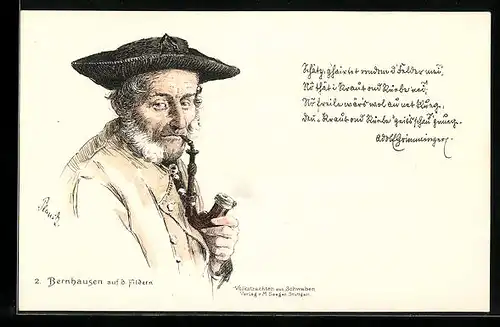 Schätz, g'hairtet ondem d' Felder mei,
No thät i Kraut ond Rüebe nei,
No freile wär's wol au net klueg,
Dui Kraut ond Rüebe geits schau gnueg.
Adolf Grimminger.
2. Bernhausen auf d. Fildern
Volkstrachten aus Schwaben
Verlag v. M. Seeger, Stuttgart.